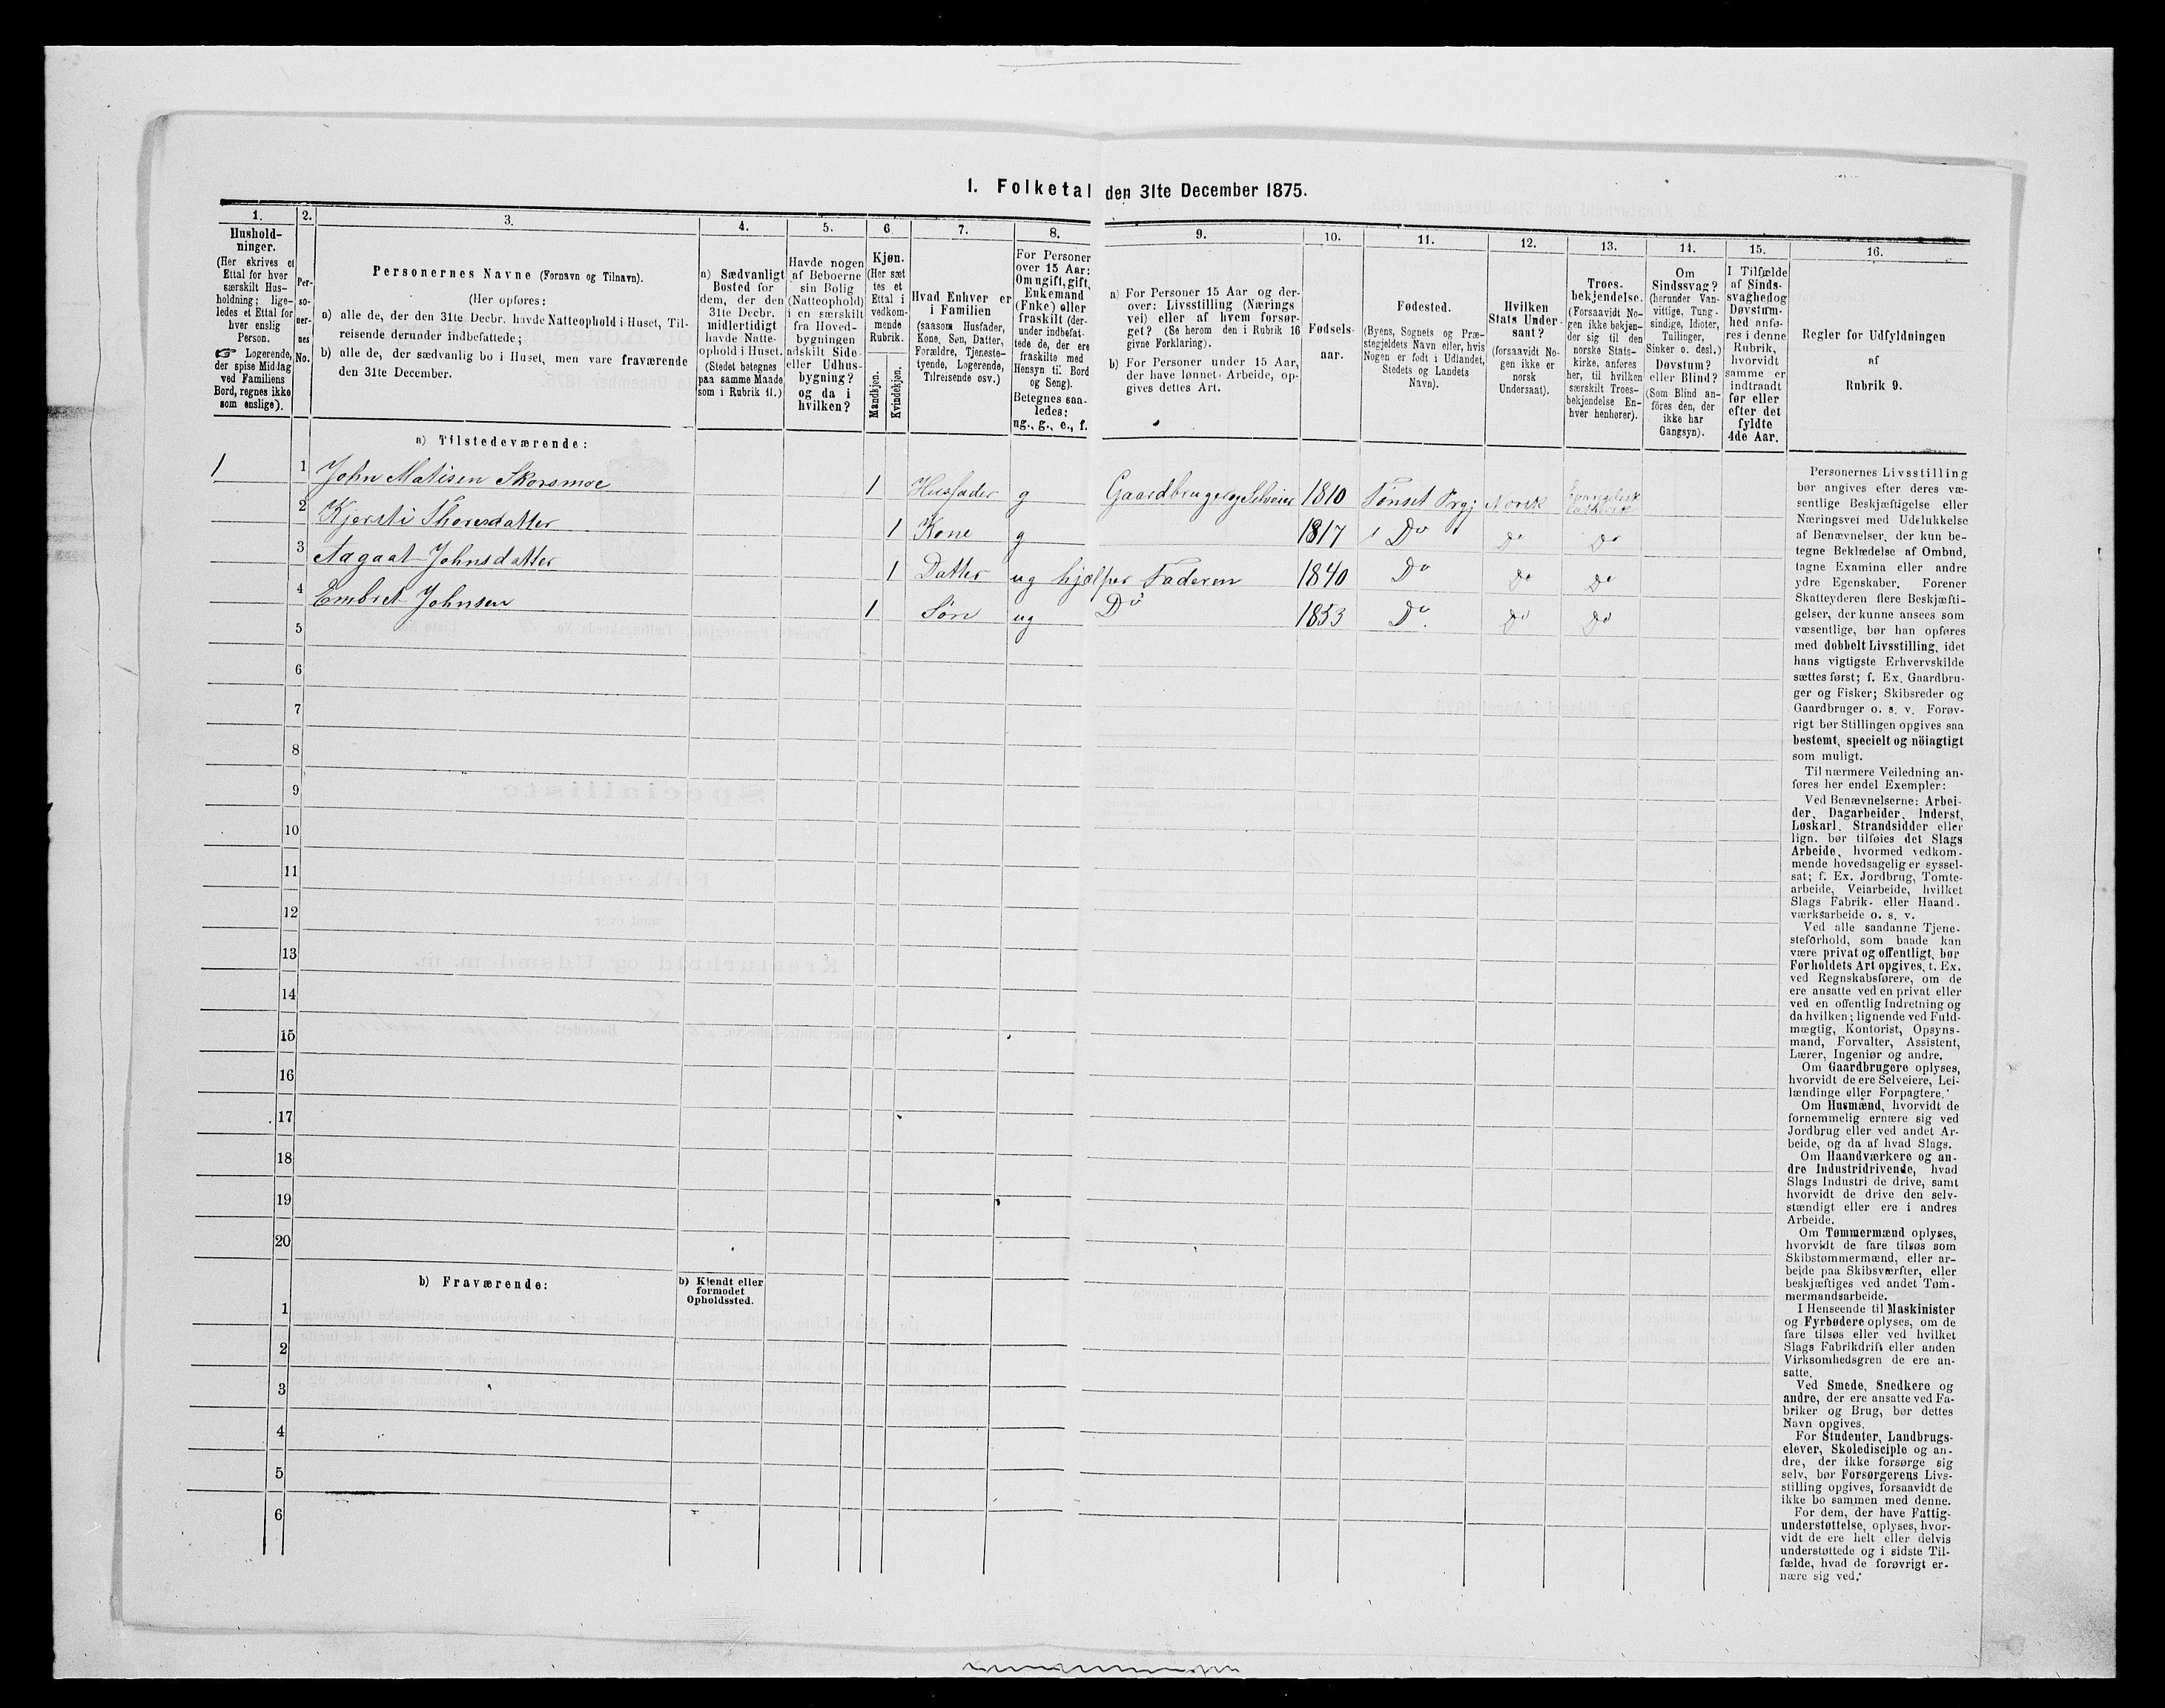 I. Folketal den 31te December 1875.
1.
Hushold-
ninger.
(Her skrives et
Ettal for hver
særskilt Hus-
holdning; lige-
ledes et Ettal for
hver enslig
Person.
☞ Logerende,
der spise Middag
ved Familiens
Bord, regnes ikke
som enslige).
2.
Per-
so-
ner-
nes
No.
3.
Personernes Navne (Fornavn og Tilnavn).
(Her opføres:
a) alle de, der den 31te Decbr. havde Natteophold i Huset, Til-
reisende derunder indbefattede;
b) alle de, der sædvanlig bo i Huset, men vare fraværende
den 31te December.
4.
a) Sædvanligt
Bosted for
dem, der den
31te Decbr.
midlertidigt
havde Natte-
ophold i Huset.
(Stedet betegnes
paa samme Maade
som i Rubrik 11.)
5.
Havde nogen
af Beboerne
sin Bolig
(Natteophold)
i en særskilt
fra Hoved-
bygningen
adskilt Side-
eller Udhus-
bygning?
og da i
hvilken?
6
Kjøn.
(Her sæt
tes et
Ettal i
vedkom-
mende
Rubrik.
Mandkjøn.
Kvindekjøn.
7.
Hvad Enhver er
i Familien
(saasom Husfader,
Kone, Søn, Datter,
Forældre, Tjeneste-
tyende, Logerende,
Tilreisende osv.)
8.
For Personer
over 15 Aar:
Om ugift, gift,
Enkemand
(Enke) eller
fraskilt (der-
under indbefat-
tede de, der ere
fraskilte med
Hensyn til Bord
og Seng).
Betegnes saa-
ledes:
ug., g., e., f.
9.
a) For Personer 15 Aar og der-
over: Livsstilling (Nærings
vei) eller af hvem forsør-
get? (Se herom den i Rubrik 16
givne Forklaring).
b) For Personer under 15 Aar,
der have lønnet Arbeide, op-
gives dettes Art.
10.
Fødsels-
aar.
11.
Fødested.
(Byens, Sognets og Præ-
stegjeldets Navn eller, hvis
Nogen er født i Udlandet,
Stedets og Landets
Navn).
12.
Hvilken
Stats Under-
saat?
(forsaavidt No-
gen ikke er
norsk
Undersaat).
13.
Troes-
bekjendelse.
(Forsaavidt No-
gen ikke bekjen-
der sig til den
norske Stats-
kirke, anføres
her, til hvilken
særskilt Troes-
bekjendelse En-
hver henhører).
14.
Om
Sindssvag?
(herunder Van-
vittige, Tung-
sindige, Idioter,
Tullinger,
Sinker o. desl.)
Døvstum?
eller Blind?
(Som Blind an-
føres den, der
ikke har
Gangsyn).
15.
I Tilfælde
af Sinds-
svaghed og
Døvstum-
hed anfø-
res i denne
Rubrik,
hvorvidt
samme er
indtraadt
før eller
efter det
fyldte
4de Aar.
16.
Regler for Udfyldningen
af
Rubrik 9.
a) Tilstedeværende:
1 1 John Matisen Skorsmoe 1 Husfader g Gaardbruger og Selveier 1810 Tønset Prgj Norsk Evangelisk Luthersk
2 Kjersti Thoresdatter 1 Kone g 1817 Do Do Do
3 Aagaat Johnsdatter 1 Datter ug hjælper Faderen 1840 Do Do Do
4 Embret Johnsen 1 Søn ug Do 1853 Do. Do Do
5
6
7
8
9
10
11
12
13
14
15
16
17
18
19
20
b) Fraværende:
b) Kjendt eller
formodet
Opholdssted.
1
2
3
4
5
6
Personernes Livsstilling
bør angives efter deres væ-
sentlige Beskjæftigelse eller
Næringsvei med Udelukkelse
af Benævnelser, der kun be-
tegne Beklædelse af Ombud,
tagne Examina eller andre
ydre Egenskaber. Forener
Skatteyderen flere Beskjæfti-
gelser, der kunne ansees som
væsentlige, bør han opføres
med dobbelt Livsstilling, idet
hans vigtigste Erhvervskilde
sættes først; f. Ex. Gaardbru-
ger og Fisker; Skibsreder og
Gaardbruger o. s. v. Forøv-
rigt bør Stillingen opgives saa
bestemt, specielt og nöiagtigt
som muligt.
Til nærmere Veiledning an-
føres her endel Exempler:
Ved Benævnelserne: Arbei-
der, Dagarbeider, Inderst,
Løskarl, Strandsidder eller
lign. bør tilføies det Slags
Arbeide, hvormed vedkom-
mende hovedsagelig er syssel-
sat; f. Ex. Jordbrug, Tomte-
arbeide, Veiarbeide, hvilket
Slags Fabrik- eller Haand-
værksarbeide o. s. v.
Ved alle saadanne Tjene-
steforhold, som baade kan
være privat og offentligt, bør
Forholdets Art opgives, t. Ex.
ved Regnskabsførere, om de
ere ansatte ved en privat eller
ved en offentlig Indretning og
da hvilken; lignende ved Fuld-
mægtig, Kontorist, Opsyns-
mand, Forvalter, Assistent,
Lærer, Ingeniør og andre.
Om Gaardbrugere oplyses,
hvorvidt de ere Selveiere, Lei-
lændinge eller Forpagtere.
Om Husmænd, hvorvidt de
fornemmelig ernære sig ved
Jordbrug eller ved andet Ar-
beide, og da af hvad Slags.
Om Haandværkere og an-
dre Industridrivende, hvad
Slags Industri de drive, samt
hvorvidt de drive den selv-
stændigt eller ere i andres
Arbeide.
Om Tømmermænd oplyses,
hvorvidt de fare tilsøs som
Skibstømmermænd, eller ar-
beide paa Skibsværfter, eller
beskjæftiges ved andet Tøm-
mermandsarbeide.
I Henseende til Maskinister
og Fyrbødere oplyses, om de
fare tilsøs eller ved hvilket
Slags Fabrikdrift eller anden
Virksomhedsgren de ere an-
satte.
Ved Smede, Snedkere og
andre, der ere ansatte ved Fa-
briker og Brug, bør dettes
Navn opgives.
For Studenter, Landbrugs-
elever, Skoledisciple og an-
dre, der ikke forsørge sig
selv, bør Forsørgerens Livs-
stilling opgives, forsaavidt de
ikke bo sammen med denne.
For dem, der have Fattig-
understøttelse, oplyses, hvor-
vidt de ere helt eller delvis
understøttede og i sidste Til-
fælde, hvad de forøvrigt er-
nære sig ved.